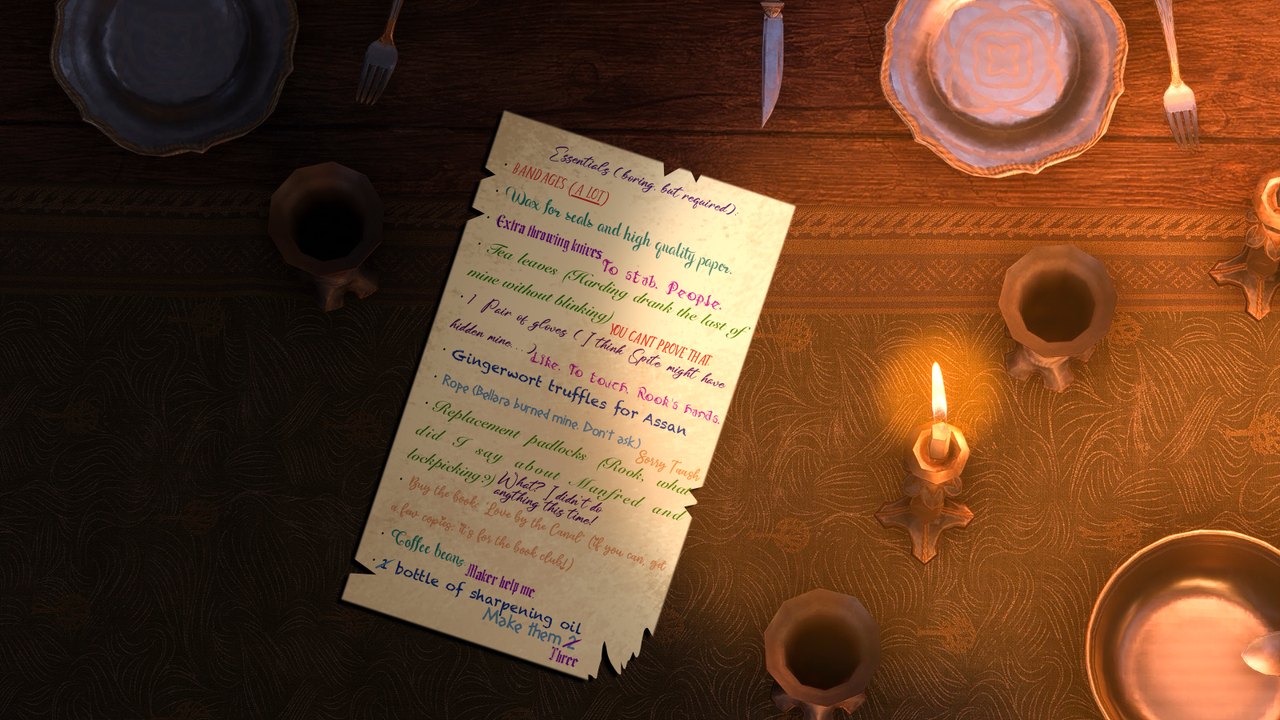 Essentials (boring, but required):
· BANDAGES (A LOT)
· Wax for seals and high quality paper.
· Extra throwing knives To stab. People.
· Tea leaves (Harding drank the last of
mine without blinking) YOU CANT PROVE THAT.
· 1 Pair of gloves ( I think Spite might have
hidden mine....) Like. To touch. Rook's hands.
· Gingerwort truffles for Assan
· Rope (Bellara burned mine. Don't ask) Sorry Taash
· Replacement padlocks (Rook, what
did I say about Manfred and
lockpicking?) What? I didn't do
anything this time!
· Buy the book: "Love by the Canal" (if you can, get
a few copies: it's for the book club!)
· Coffee beans Maker help me.
· 1 bottle of sharpening oil
Make them 2
Three